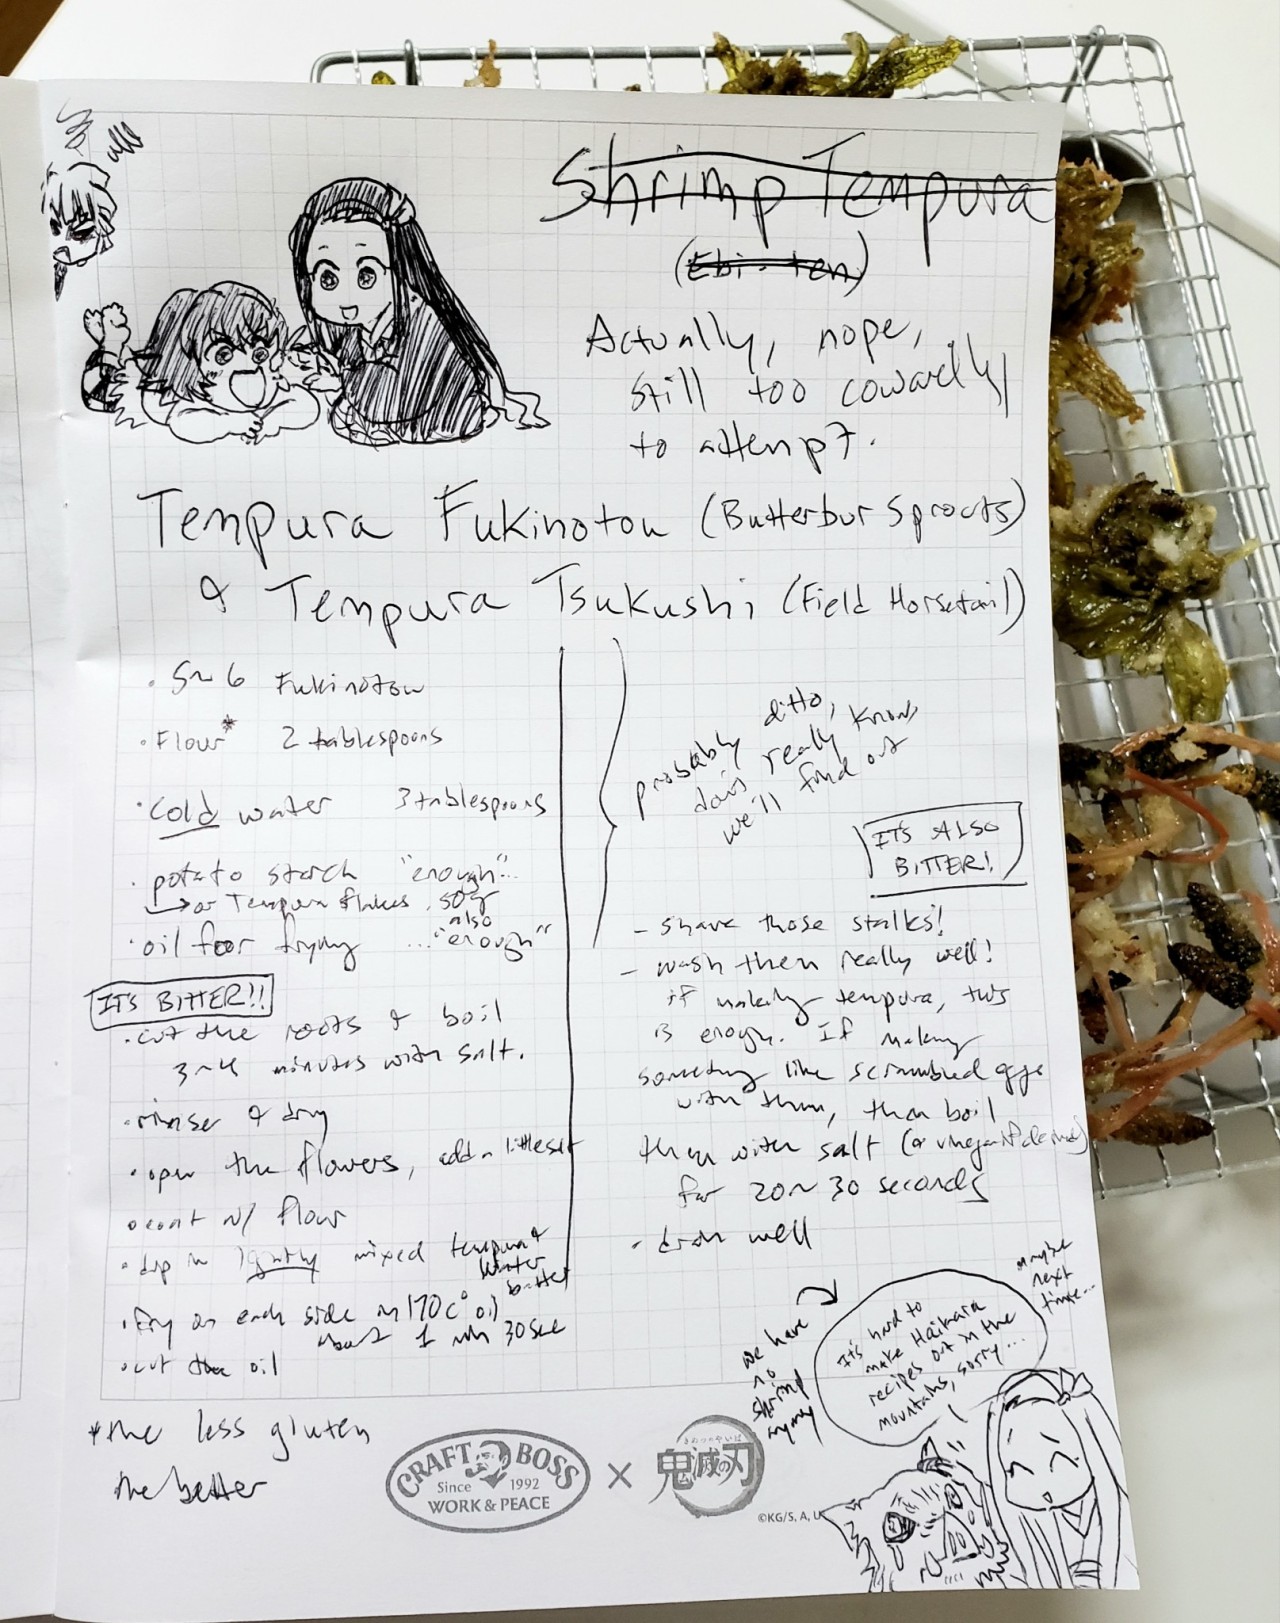 Shrimp Tempura
(Ebi-ten)
Actually, nope,
still too cowardly
to attempt.
Tempura Fukinotou (Butterbur Sprouts)
& Tempura Tsukushi (Field Horsetail)
· 5~6 Fukinotou
· Flour* 2 tablespoons
· cold water 3 tablespoons
· potato starch "enough"...
→ or Tempura flakes, 50g
· oil for frying ... also "enough"
IT'S BITTER!!
· cut the roots & boil
3~4 minutes with salt.
· rinse & dry
· open the flowers, add a little salt
· coat w/ flour
· dip in lightly mixed tempura &
water
batter
· fry on each side in 170c° oil
about 1 min 30 sec
· cut the oil
* the less gluten
the better
probably ditto,
don't really know,
we'll find out
IT'S ALSO
BITTER!
- shave those stalks!
- wash them really well!
if making tempura, this
is enough. If making
something like scrambled eggs
with them, then boil
them with salt (or vinegar if desired)
for 20~30 seconds
· drain well
we have
no
shrimp
anyway
It's hard to
make Haikara
recipes out in the
mountains, sorry...
maybe
next
time...
CRAFT BOSS
Since 1992
WORK & PEACE
×
きめつのやいば
鬼滅の刃
©KG/S, A, U